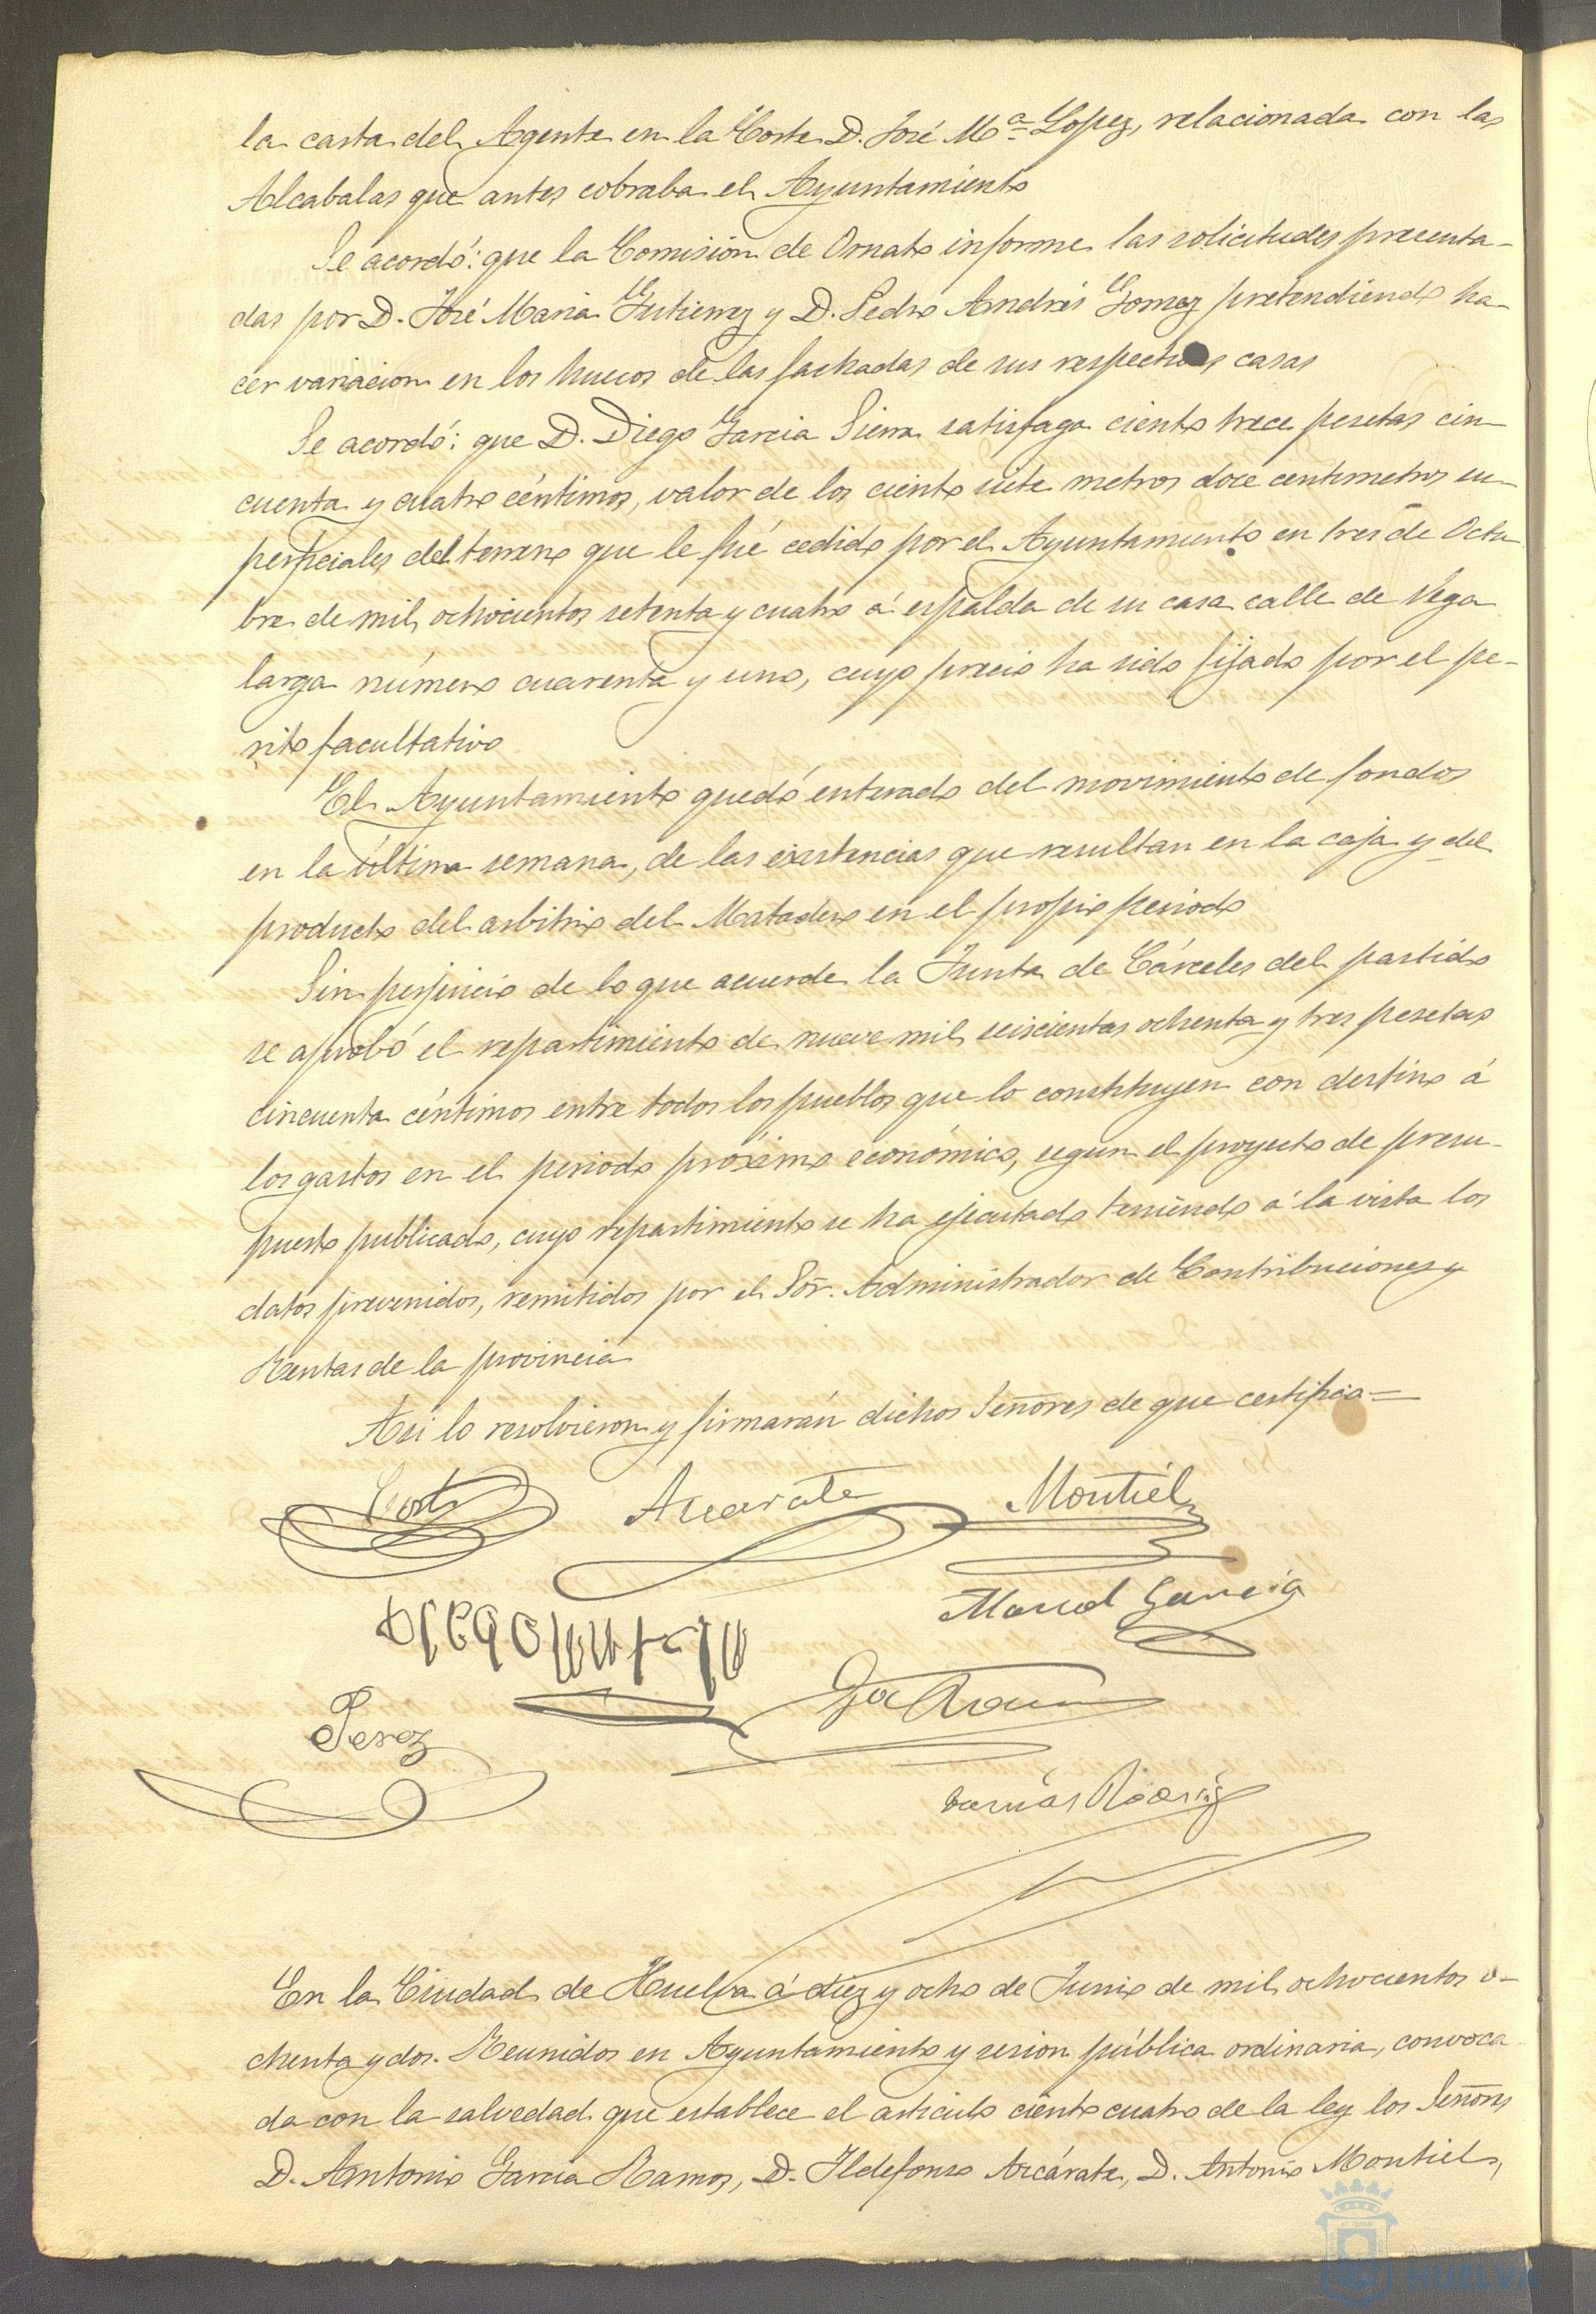 la carta del Agente en la Corte D. José M.ª Lopez, relacionada con las
Alcabalas que antes cobraba el Ayuntamiento
Se acordó: que la Comision de Ornato informe las solicitudes presenta-
das por D. José Maria Gutierrez y D. Pedro Andrés Gomez pretendiendo ha-
cer variacion en los huecos de las fachadas de sus respectivas casas
Se acordó: que D. Diego Garcia Sierra satisfaga ciento trece pesetas cin-
cuenta y cuatro céntimos, valor de los ciento siete metros doce centimetros su-
perficiales del terreno que le fué cedido por el Ayuntamiento en tres de Octu
bre de mil ochocientos setenta y cuatro á espalda de su casa calle de Vega
larga número cuarenta y uno, cuyo precio ha sido fijado por el pe-
rito facultativo
El Ayuntamiento quedó enterado del movimiento de fondos
en la última semana, de las existencias que resultan en la caja y del
producto del arbitrio del Matadero en el propio periodo
Sin perjuicio de lo que acuerde la Junta de Cárceles del partido
se aprobó el repartimiento de nueve mil seiscientas ochenta y tres pesetas
cincuenta céntimos entre todos los pueblos que lo constituyen con destino á
los gastos en el periodo próximo económico, segun el proyecto de presu-
puesto publicado, cuyo repartimiento se ha ejecutado teniendo á la vista los
datos prevenidos, remitidos por el Sör. Administrador de Contribuciones y
Rentas de la provincia
Asi lo resolvieron y firmarán dichos Señores de que certifico=
Azcarate Montiel
Manuel Garcia
Perez
En la Ciudad de Huelva á diez y ocho de Junio de mil ochocientos o-
chenta y dos. Reunidos en Ayuntamiento y sesion pública ordinaria, convoca
da con la salvedad que establece el articulo ciento cuatro de la ley los Señores
D. Antonio Garcia Ramos, D. Ildefonso Azcárate, D. Antonio Montiel,
HUELVA